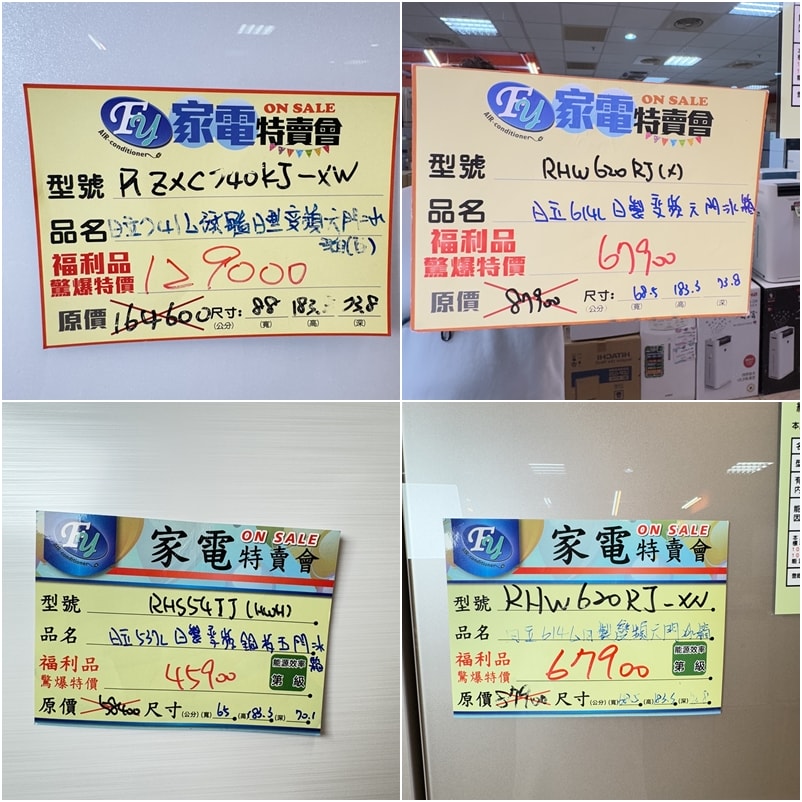 Fy 家電特賣會 ON SALE
AIR-conditioner
型號 RZXC740KJ-XW
品名 日立741L 日製變頻六門冰
福利品
驚爆特價 129000
原價 164600 尺寸: 88 183.3 73.8
(公分) (寬) (高) (深)
Fy 家電特賣會 ON SALE
AIR-conditioner
型號 RHW620RJ(X)
品名 日立614L日製變頻六門冰箱
福利品
驚爆特價 67900
原價 87900 尺寸: 68.5 183.3 73.8
(公分) (寬) (高) (深)
HITACHI
Fy 家電特賣會 ON SALE
型號 RHS54TJ (HWH)
品名 日立537L日製變頻鋼板五門冰箱
福利品
驚爆特價 45900
能源效率
第 級
原價 58400 尺寸(公分)(寬) 65 (高) 183.3 (深) 70.1
Fy 家電特賣會 ON SALE
型號 RHW620RJ-XW
品名 日立614L日製變頻六門冰箱
福利品
驚爆特價 67900
能源效率
第 級
原價 尺寸(公分)(寬) 68.5 (高) 183.3 (深)